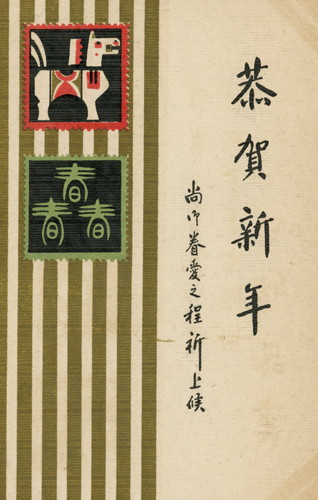 恭賀新年
尚御眷愛之程祈上候
春
春春